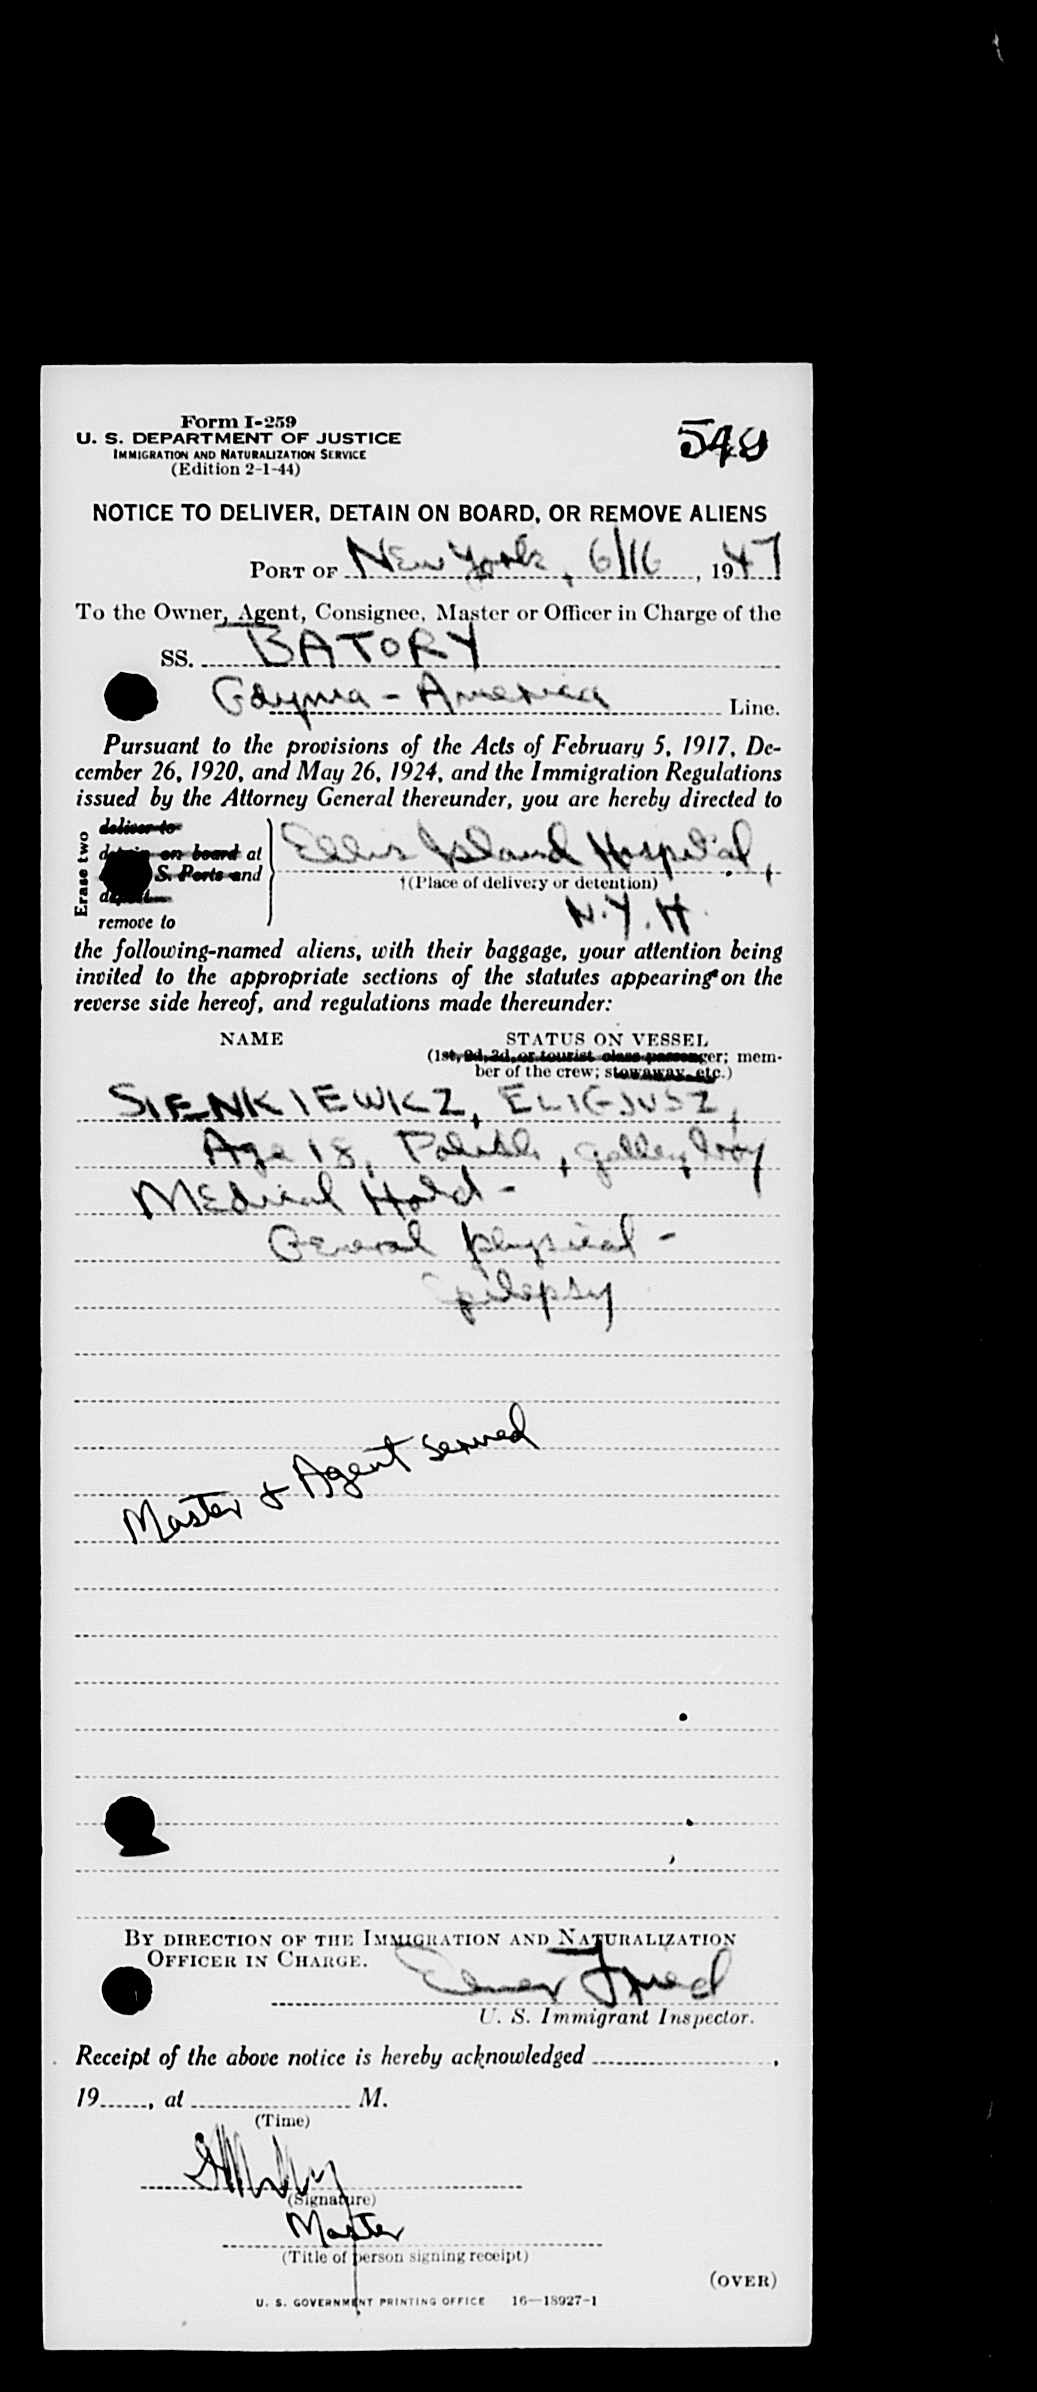 Form I-259
U. S. DEPARTMENT OF JUSTICE
IMMIGRATION AND NATURALIZATION SERVICE
(Edition 2-1-44)
549
NOTICE TO DELIVER, DETAIN ON BOARD, OR REMOVE ALIENS
PORT OF New York, 6/16, 1947
To the Owner, Agent, Consignee, Master or Officer in Charge of the
SS. BATORY
Gdynia - America Line.
Pursuant to the provisions of the Acts of February 5, 1917, De-
cember 26, 1920, and May 26, 1924, and the Immigration Regulations
issued by the Attorney General thereunder, you are hereby directed to
Erase two
deliver to
on board at
S. Ports and
remove to
Ellis Island Hospital,
†(Place of delivery or detention)
N.Y.H.
the following-named aliens, with their baggage, your attention being
invited to the appropriate sections of the statutes appearing on the
reverse side hereof, and regulations made thereunder:
NAME STATUS ON VESSEL
(1st, 2d, 3d, or tourist class passenger; mem-
ber of the crew; stowaway, etc.)
SIENKIEWICZ, ELIGJUSZ,
Age 18, Polish, galley boy
Medical Hold -
General physical -
Epilepsy
Master & Agent served
BY DIRECTION OF THE IMMIGRATION AND NATURALIZATION
OFFICER IN CHARGE.
Elmer Fried
U. S. Immigrant Inspector.
Receipt of the above notice is hereby acknowledged ,
19 , at M.
(Time)
(Signature)
Master
(Title of person signing receipt)
(OVER)
U. S. GOVERNMENT PRINTING OFFICE 16—18927-1